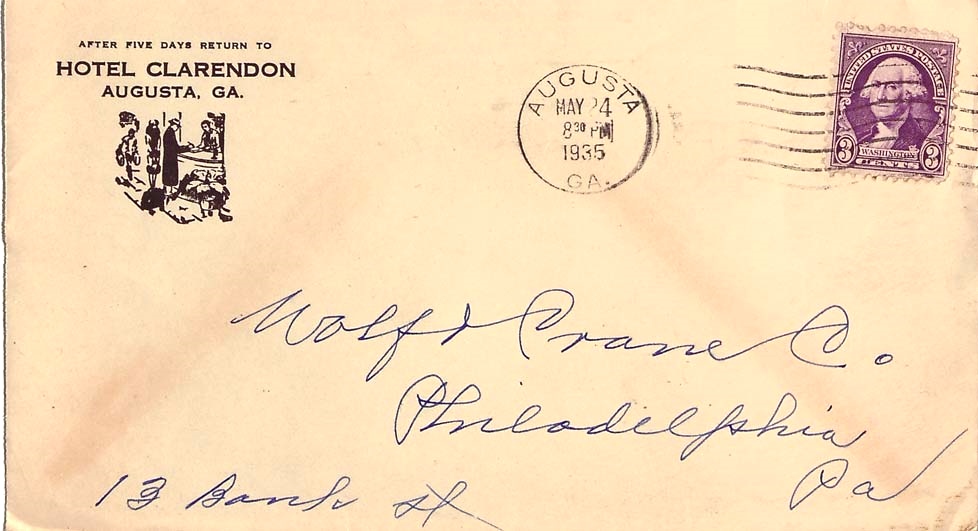 AFTER FIVE DAYS RETURN TO
HOTEL CLARENDON
AUGUSTA, GA.
AUGUSTA
MAY 24
8 30 PM
1935
GA.
UNITED STATES POSTAGE
3 WASHINGTON 3
CENTS
Wolf & Crane Co.
Philadelphia
Pa
13 Bank St